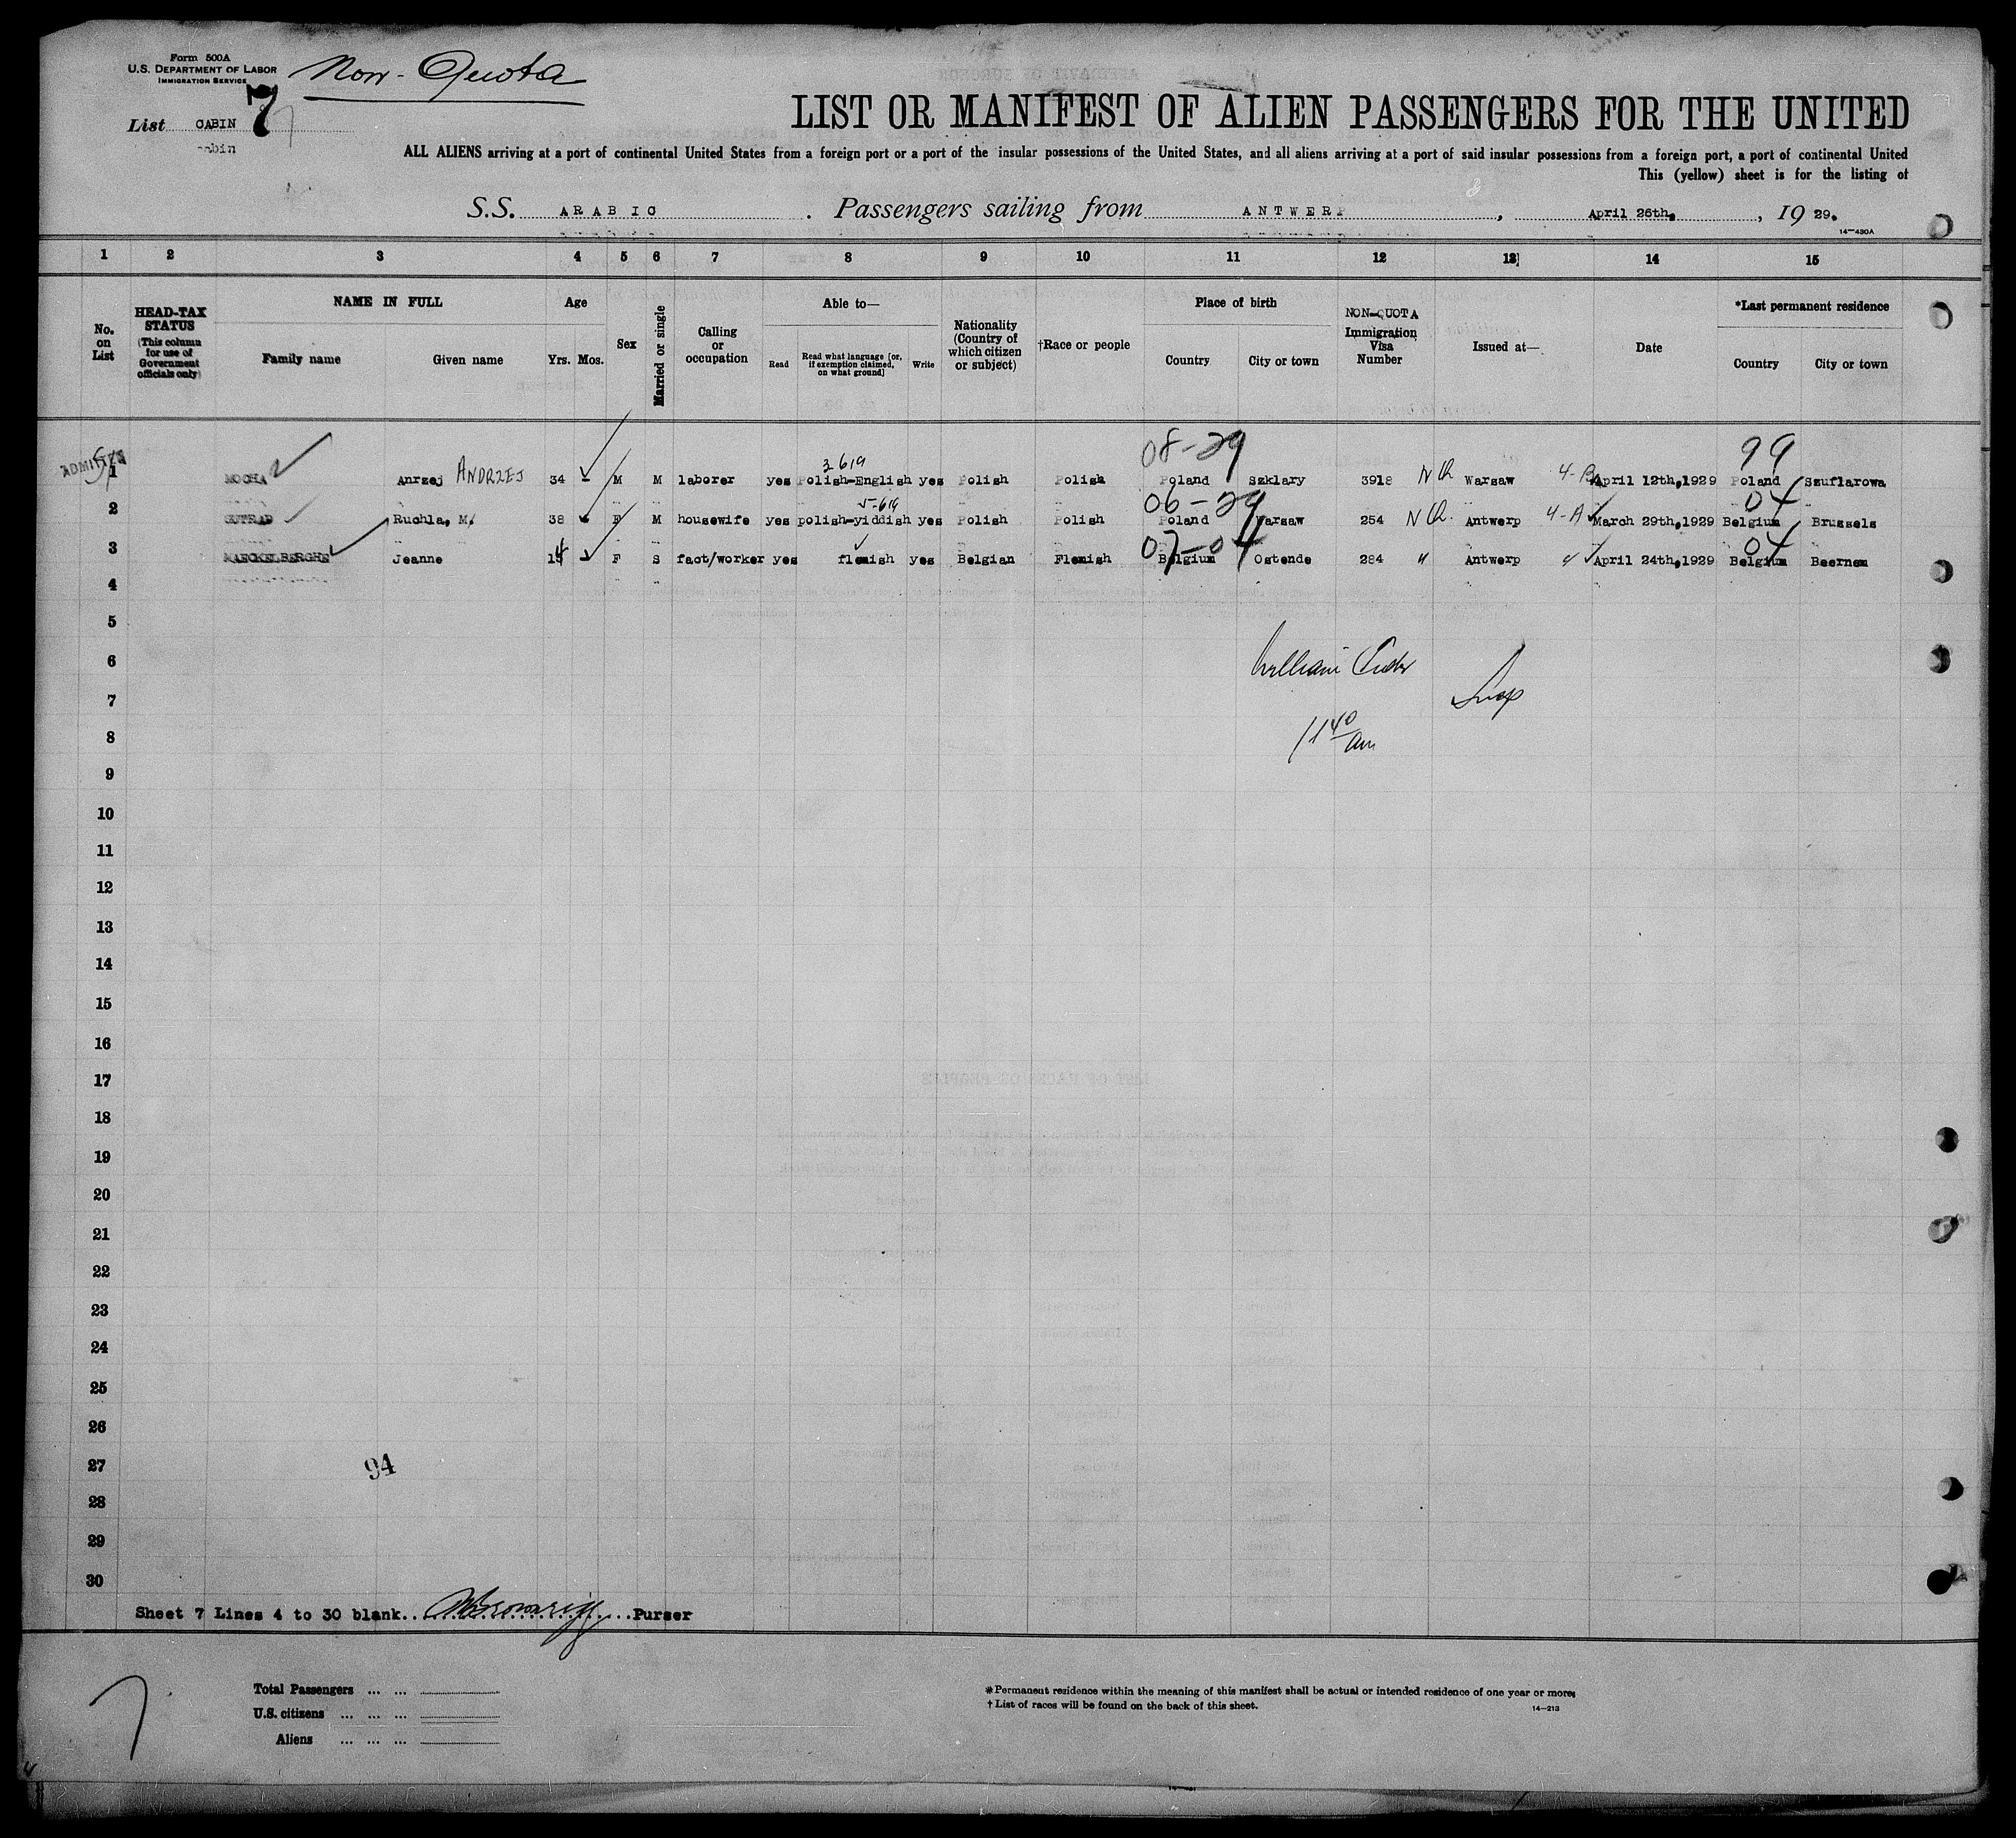 Form 500A
U.S. DEPARTMENT OF LABOR
IMMIGRATION SERVICE
Non-Quota
List CABIN 7
LIST OR MANIFEST OF ALIEN PASSENGERS FOR THE UNITED
ALL ALIENS arriving at a port of continental United States from a foreign port or a port of the insular possessions of the United States, and all aliens arriving at a port of said insular possessions from a foreign port, a port of continental United
This (yellow) sheet is for the listing of
S.S. ARABIC . Passengers sailing from ANTWERP , April 26th, , 19 29.
14—430A
1 2 3 4 5 6 7 8 9 10 11 12 13 14 15
No. on List
HEAD-TAX STATUS
(This column for use of Government officials only)
NAME IN FULL
Family name Given name
Age
Yrs. Mos.
Sex
Married or single
Calling or occupation
Able to—
Read Read what language [or, if exemption claimed, on what ground] Write
Nationality (Country of which citizen or subject)
†Race or people
Place of birth
Country City or town
NON-QUOTA Immigration Visa Number
Issued at—
Date
*Last permanent residence
Country City or town
08-29 99
ADMITTED
1 MOCHA Anrzej ANDRZEJ 34 - M M laborer yes Polish-English yes Polish Polish Poland Szklary 3918 Warsaw 4-B April 12th,1929 Poland Szuflarowa
06-29 04
2 GUTRAD Ruchla, M. 38 F M housewife yes polish-yiddish yes Polish Polish Poland Warsaw 254 Antwerp 4-A March 29th,1929 Belgium Brussels
07-04 04
3 MAECKELBERGHE Jeanne F S fact/worker yes flemish yes Belgian Flemish Belgium Ostende 284 " Antwerp April 24th,1929 Belgium Beernem
4
5
6
William
7
Insp
8
11 40 am
9
10
11
12
13
14
15
16
17
18
19
20
21
22
23
24
25
26
27
94
28
29
30
Sheet 7 Lines 4 to 30 blank. Purser
7
Total Passengers ... ...
U.S. citizens ... ... ...
Aliens ... ... ...
*Permanent residence within the meaning of this manifest shall be actual or intended residence of one year or more.
† List of races will be found on the back of this sheet.
14—213